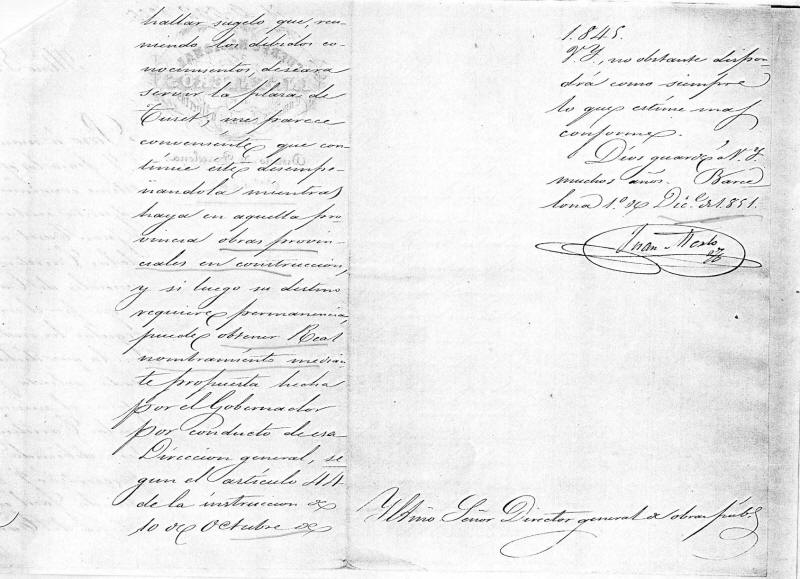 hallar sugeto que, reu-
niendo los debidos co-
nocimientos, deseara
servir la plaza de
Turet, me parece
conveniente que con-
tinue este desempe-
ñandola mientras
haya en aquella pro-
vincia obras provin-
ciales en construccion,
y si luego su destino
requiere permanencia,
puede obtener Real
nombramiento median-
te propuesta hecha
por el Gobernador
por conducto de esa
Direccion general, se-
gun el artículo 44
de la instruccion de
10 de Octubre de
1.845.
V.I., no obstante dispon-
drá como siempre
lo que estime mas
conforme.
Dios guarde á V.I.
muchos años. Barce-
lona 1º de Dice. de 1851.
Juan
Iltmo Señor Director general de obras públs.